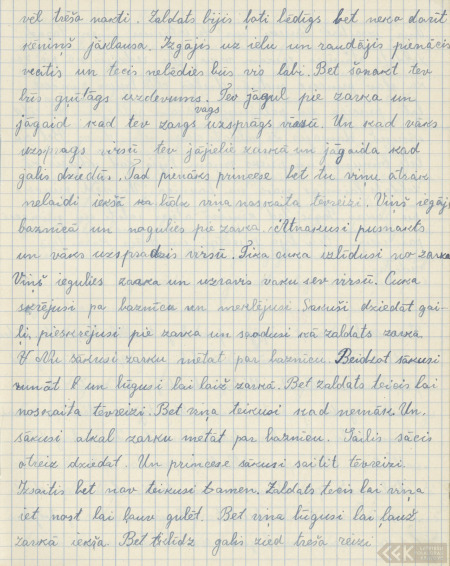 vēl treša nakti. Zaldats bijis ļoti bēdigs bet neko darit
ķeniņš jāklausa. Izgājis uz ielu un raudājis pienācis
vecitis un teicis nebēdies būs vis labi. Bet šonakt tev
būs grūtāgs uzdevums. Tev jāgul pie zarka un
jāgaid kad tev zargs vags uzsprāgs virsū. Un kad vāks
uzsprāgs virsū tev jājielie zarkā un jāgaida kad
galis dziedās. Tad pienāks princese bet tu viņu ātrāk
nelaidi iekšā ka lūdz viņa noskaita tēvreizi. Viņš iegāj
baznīcā un nogulies pie zarka. Atnakusi pusnakts
un vāks uzsprādzis virsū. Tika cuka izlidusi no zarka
Viņš iegulies zarka un uzravis vaku sev virsū. Cuka
skrējusi pa baznīcu un meklējusi. Sākuši dziedāt gai-
ļi, pieskrējusi pie zarka un saodusi kā zaldats zarka
Nu sākusi zarku mētat par baznicu. Beidzot sākusi
runāt un lūgusi lai laiž zarkā. Bet zaldats teicis lai
noskaita tēvreizi. Bet viņa teikusi kad nemāk. Un.
sākusi atkal zarku mētat par baznīcu. Gailis sācis
otreiz dziedat. Un princese sākusi saitit tēvreizi.
Izsaitis bet nav teikusi tamen. Zaldats tecis lai viņa
iet nost lai ļauv gulēt. Bet viņa lūgusi lai ļauž
zarkā iekša. Bet tilidz galis zied treša reizi